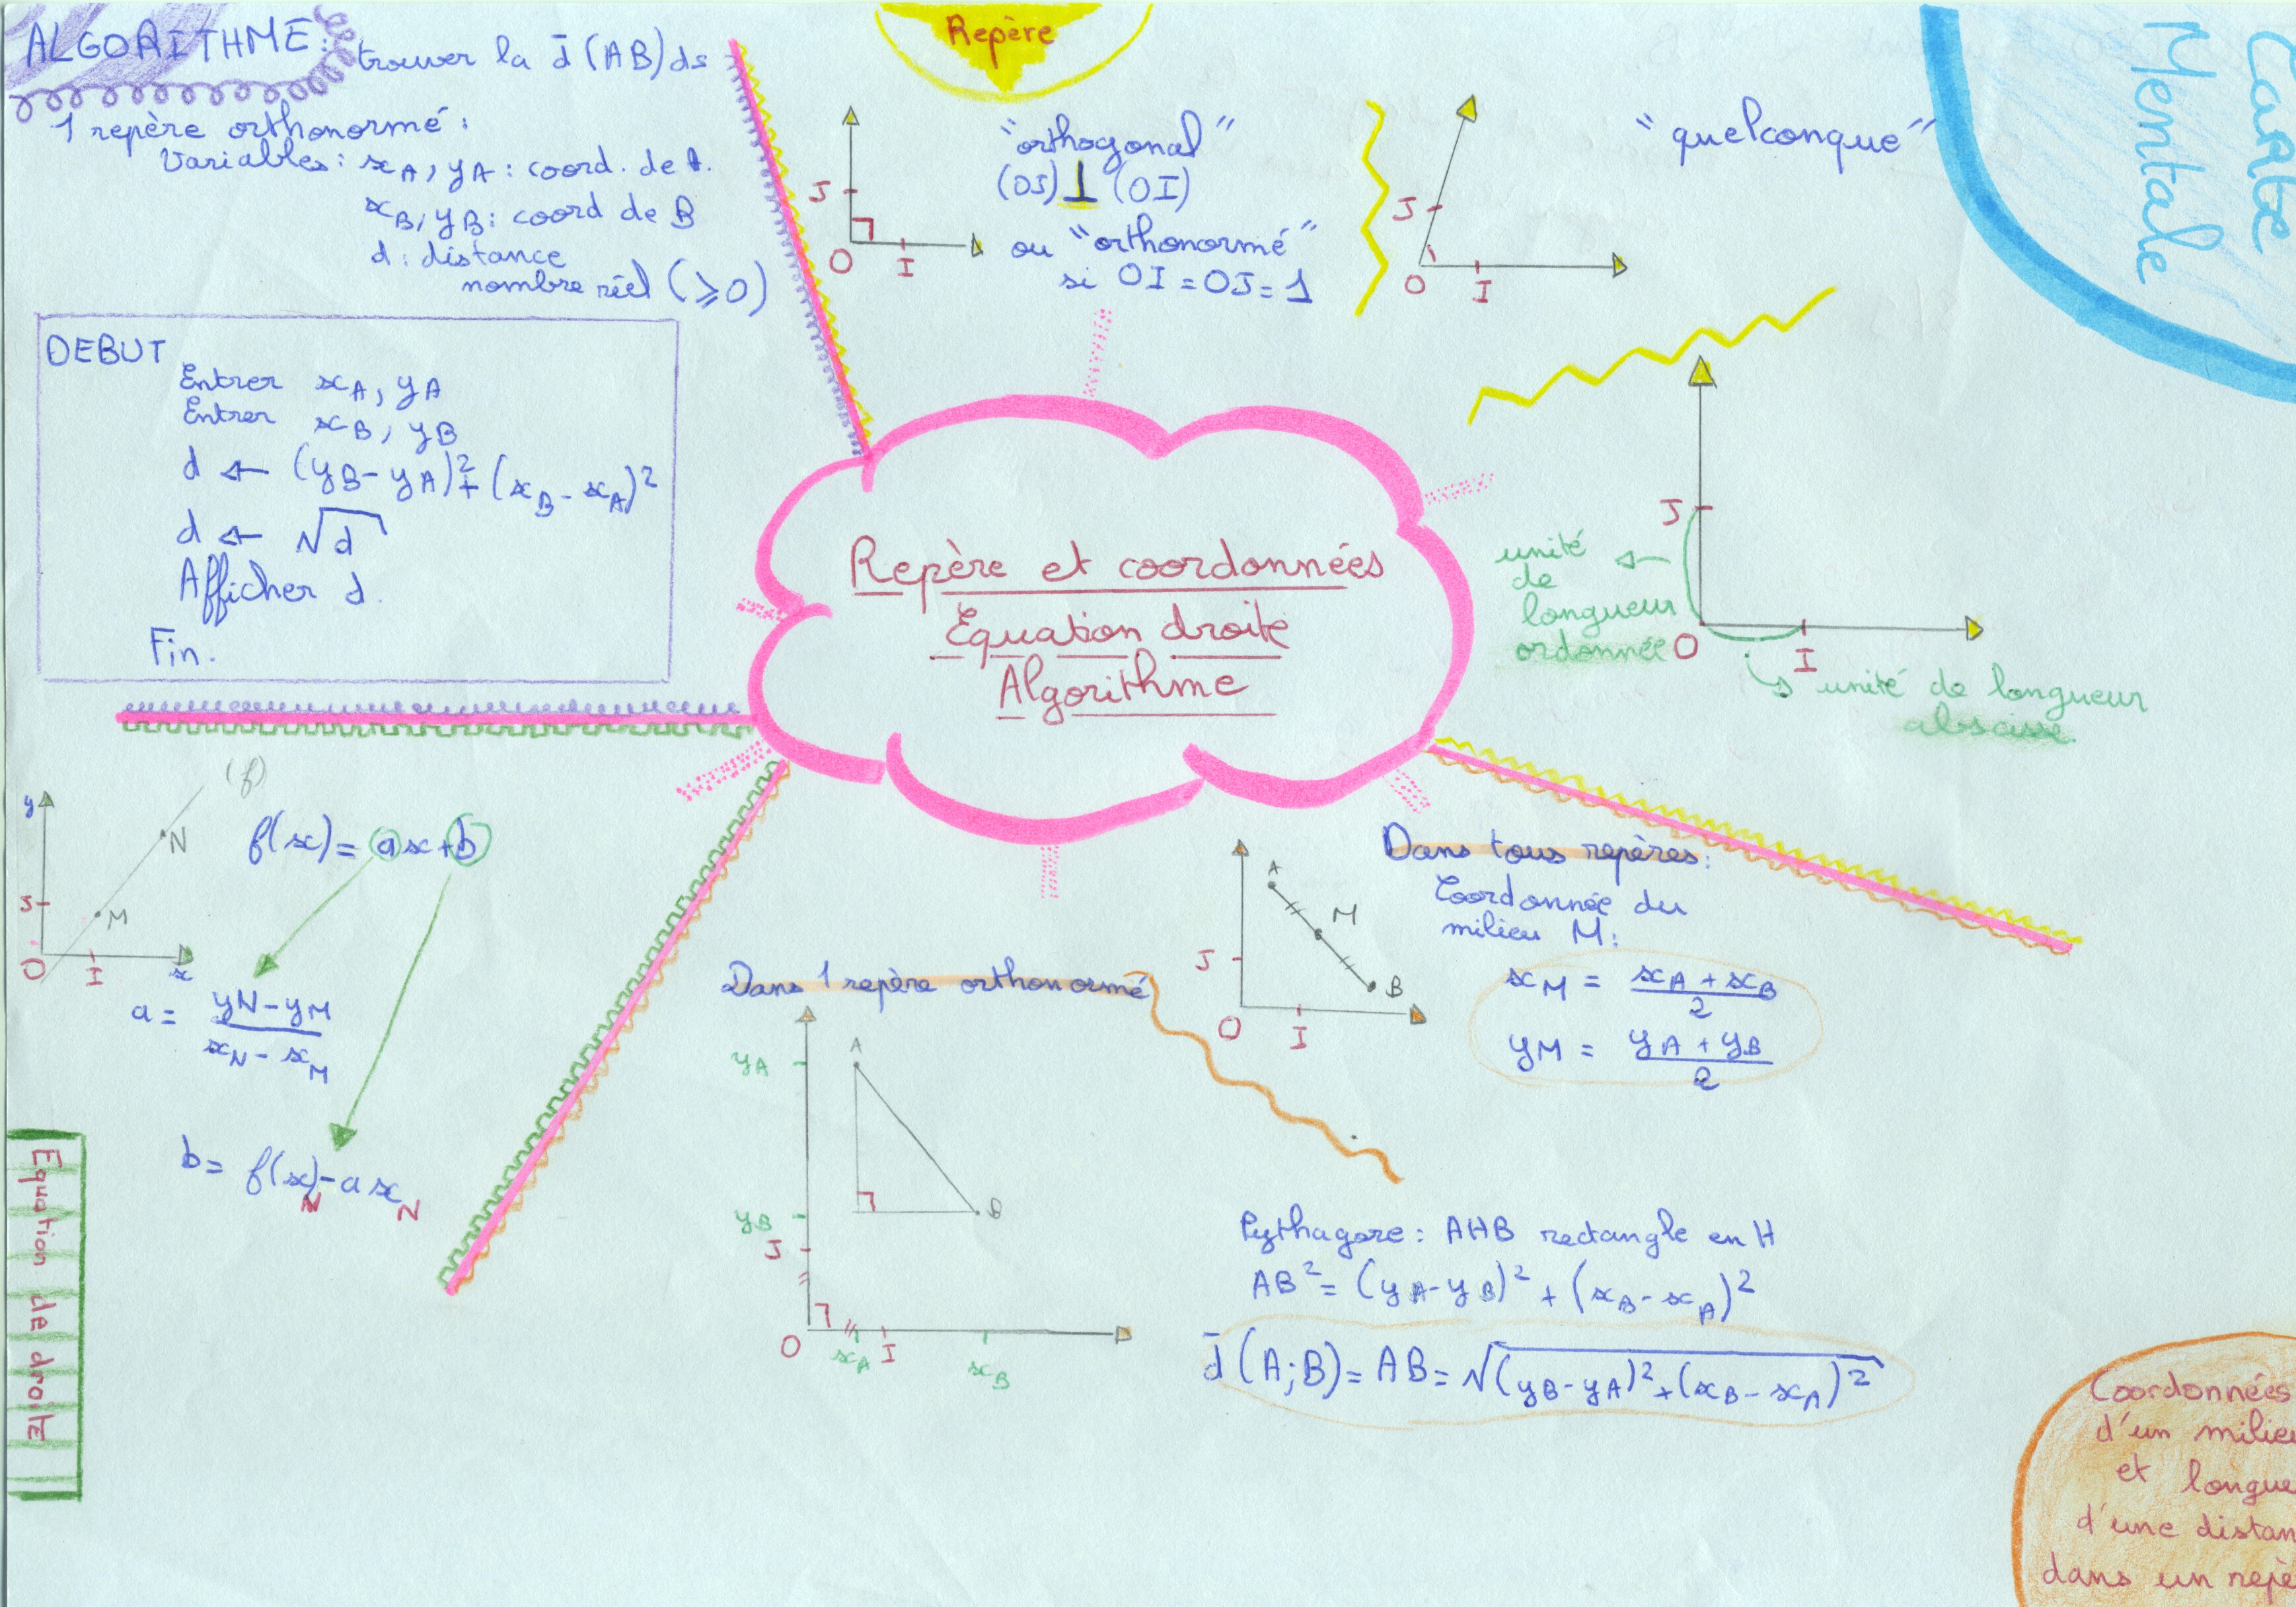 ALGORITHME: trouver la d̄ (AB) ds
1 repère orthonormé:
Variables: xA, yA: coord. de A.
xB, yB: coord de B
d: distance
nombre réel (⩾0)
DEBUT
Entrer xA, yA
Entrer xB, yB
d ← (yB-yA)²+(xB-xA)²
d ← √d
Afficher d.
Fin.
Repère
"orthogonal"
(OJ)⊥(OI)
ou "orthonormé"
si OI=OJ=1
J
O
I
"quelconque"
J
O
I
Carte
Mentale
J
unité
de
longueur
ordonnée
O
I
unité de longueur
abscisse
Repère et coordonnées
Equation droite
Algorithme
(f)
y
N
J
M
O
I
x
f(x)= ax+b
a= yN-yM
xN-xM
b= f(x)-a x
N N
Equation de droite
Dans tous repères:
Coordonnée du
milieu M:
xM = xA+xB
2
yM = yA+yB
2
A
M
J
B
O
I
Dans 1 repère orthonormé
A
yA
yB
B
J
O
xA
I
xB
Pythagore: AHB rectangle en H
AB²=(yA-yB)²+(xB-xA)²
d̄ (A;B)=AB=√(yB-yA)²+(xB-xA)²
Coordonnées
d'un milieu
et longue
d'une distan
dans un repè